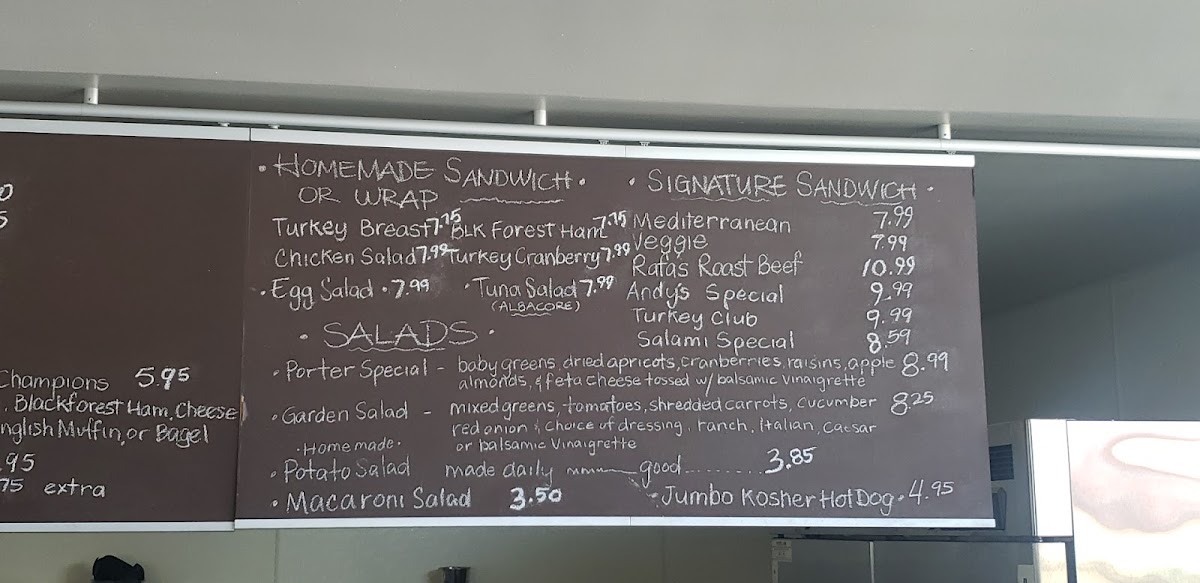 0
5
Champions 5.95
, Blackforest Ham, Cheese
nglish Muffin, or Bagel
.95
75 extra
· HOMEMADE SANDWICH ·
OR WRAP
Turkey Breast 7.75 BLK Forest Ham 7.75
Chicken Salad 7.99 Turkey Cranberry 7.99
· Egg Salad · 7.99 · Tuna Salad 7.99
(ALBACORE)
· SIGNATURE SANDWICH ·
Mediterranean 7.99
Veggie 7.99
Rafa's Roast Beef 10.99
Andy's Special 9.99
Turkey Club 9.99
Salami Special 8.59
· SALADS ·
· Porter Special - baby greens, dried apricots, cranberries, raisins, apple 8.99
almonds, & feta cheese tossed w/ balsamic vinaigrette
· Garden Salad - mixed greens, tomatoes, shredded carrots, cucumber 8.25
red onion & choice of dressing, ranch, Italian, Caesar
or balsamic vinaigrette
· Homemade ·
· Potato Salad made daily mmm good 3.85
· Macaroni Salad 3.50
· Jumbo Kosher Hot Dog · 4.95